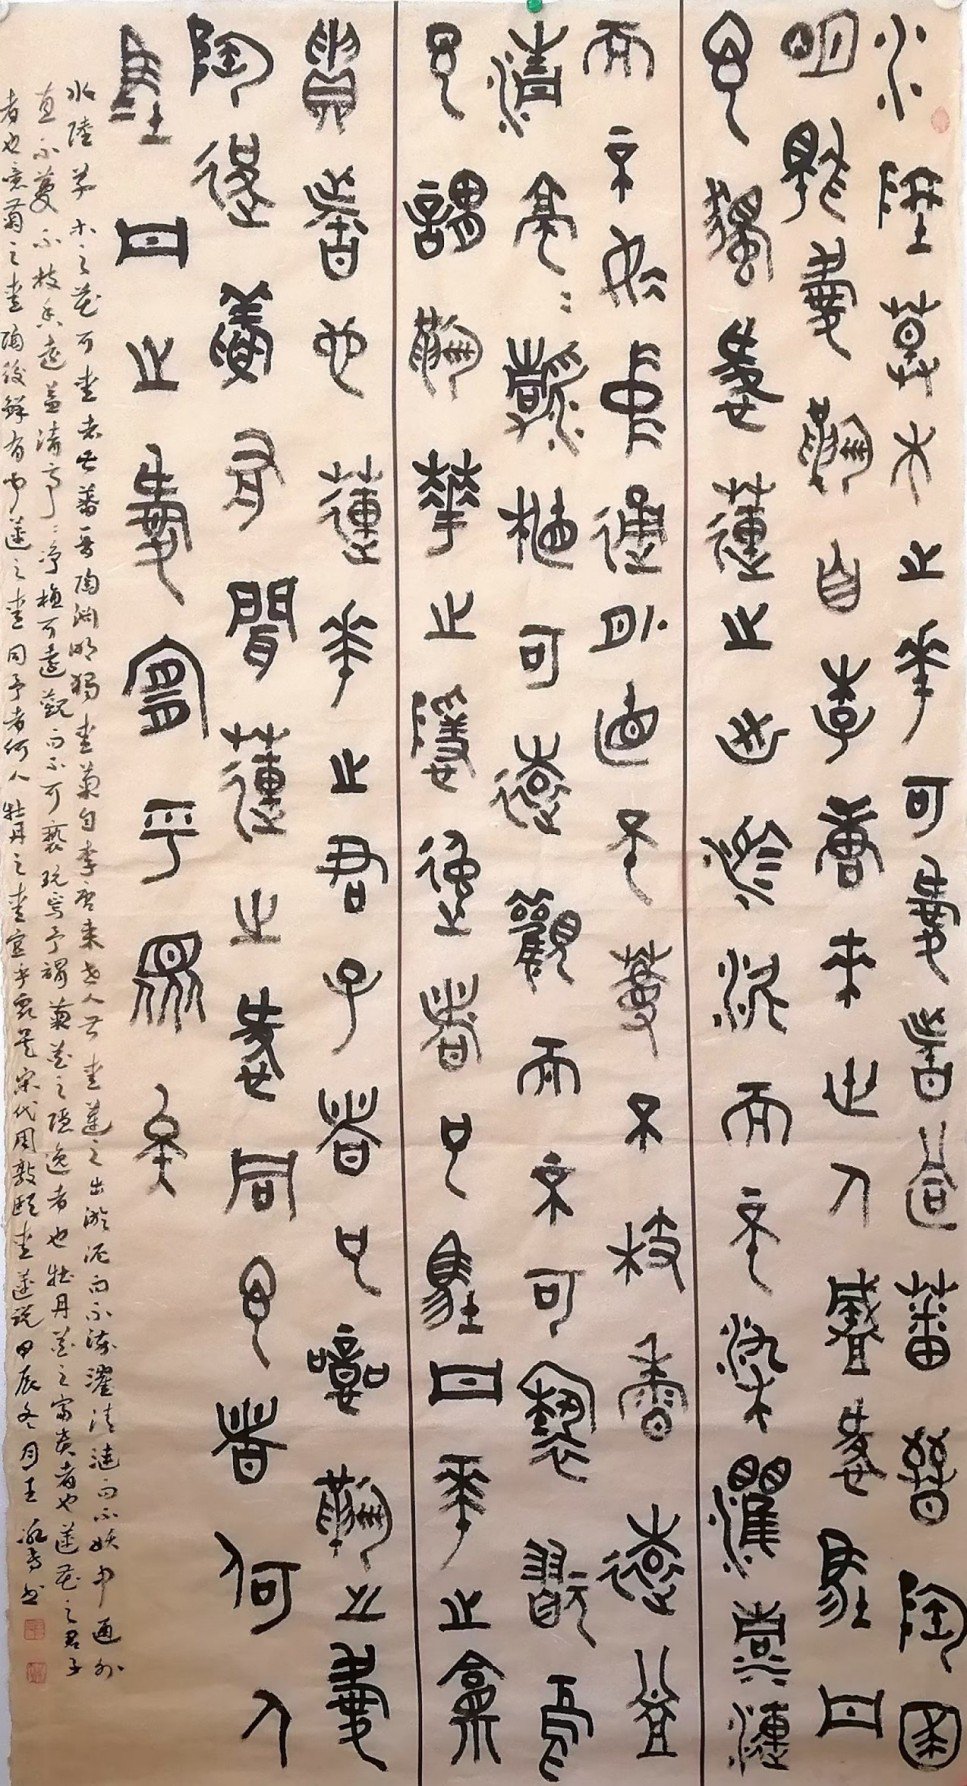 水陸草木之華可愛者甚蕃晉陶淵
明獨愛菊自李唐來世人盛愛牡丹
予獨愛蓮之出淤泥而不染濯清漣
而不妖中通外直不蔓不枝香遠益
清亭〻靜植可遠觀而不可褻翫焉
予謂菊華之隱逸者也牡丹華之富
貴者也蓮華之君子者也噫菊之愛
陶後鮮有聞蓮之愛同予者何人
牡丹之愛宜乎眾矣
水陸草木之花可愛者甚蕃晉陶淵明獨愛菊自李唐來世人甚愛蓮之出淤泥而不染濯清漣而不妖中通外
直不蔓不枝香遠益清亭〻淨植可遠觀而不可褻玩焉予謂菊花之隱逸者也牡丹花之富貴者也蓮花之君子
者也噫菊之愛陶後鮮有聞蓮之愛同予者何人牡丹之愛宜乎眾矣宋代周敦頤愛蓮說甲辰冬月王書